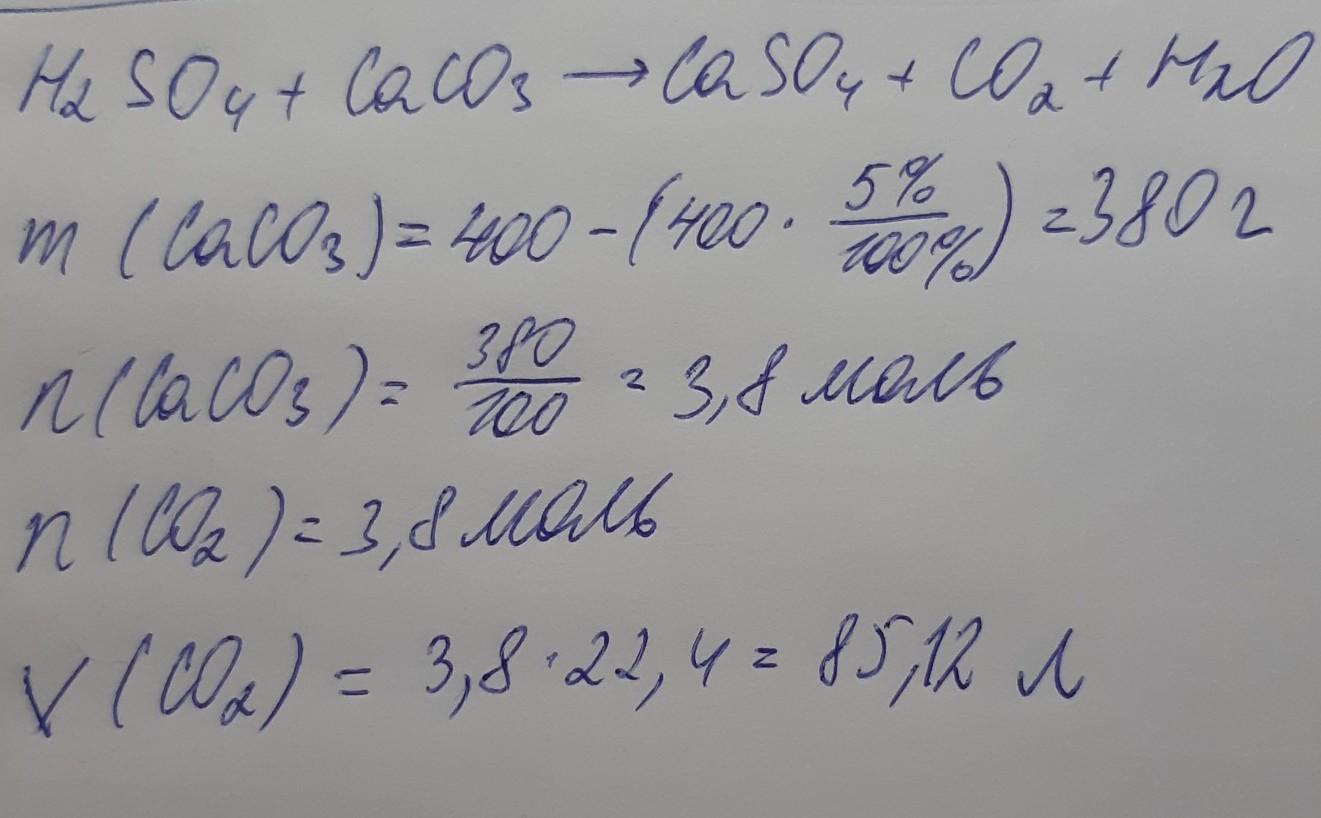 H₂SO₄ + CaCO₃ → CaSO₄ + CO₂ + H₂O
m (CaCO₃) = 400 - (400 · 5%/100%) = 380 г
n (CaCO₃) = 380/100 = 3,8 моль
n (CO₂) = 3,8 моль
V (CO₂) = 3,8 · 22,4 = 85,12 л